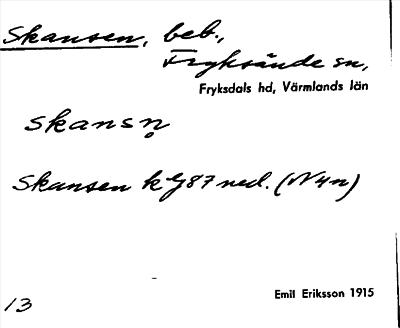 Skansen, beb.,
Fryksände sn,
Fryksdals hd, Värmlands län
skansn̥
Skansen kG87 ned. (N4n)
13
Emil Eriksson 1915